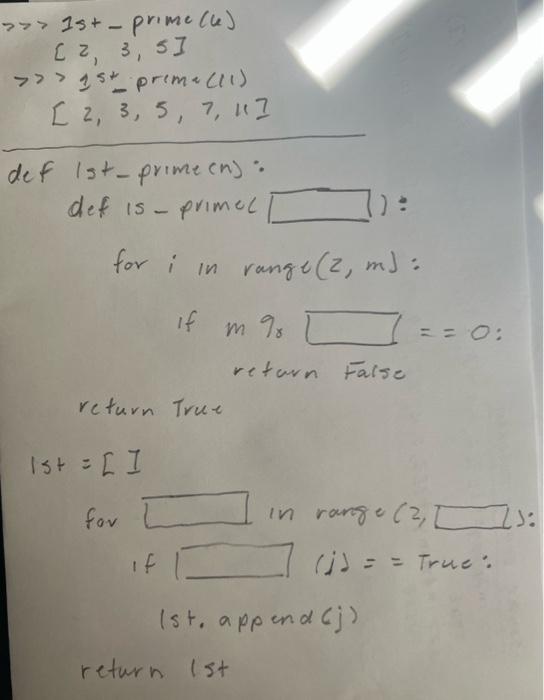 >>> 1st_prime(6)
[2, 3, 5]
>>> 1st_prime(11)
[2, 3, 5, 7, 11]
def 1st_prime(n):
def is_prime( ):
for i in range(2, m):
if m % == 0:
return False
return True
1st = [ ]
for in range(2, ):
if (j) == True:
1st.append(j)
return 1st